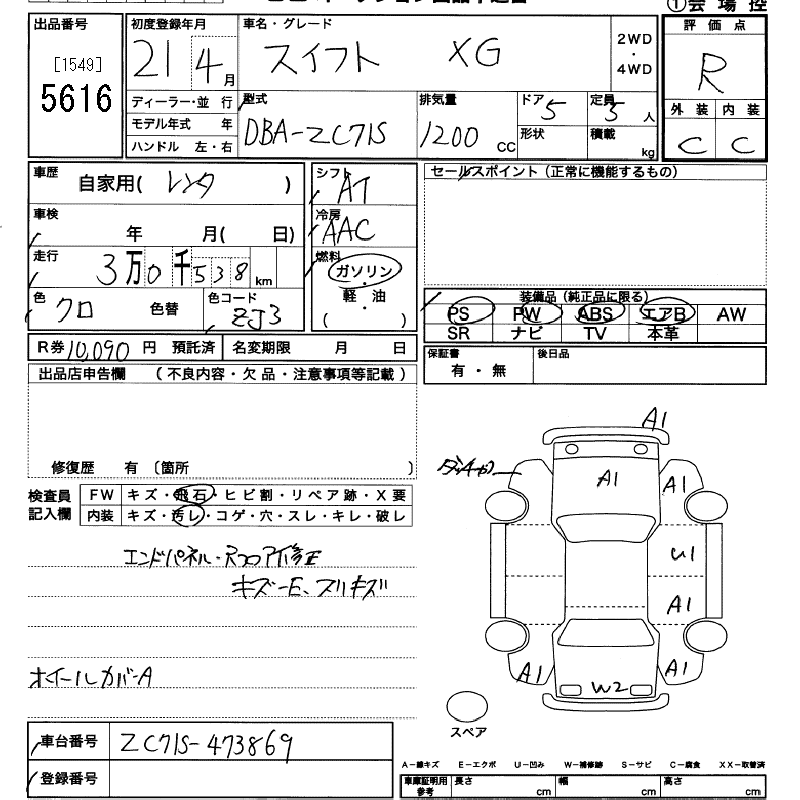 ①会場控
出品番号
[1549]
5616
初度登録年月
21 4月
ディーラー・並 行
モデル年式 年
ハンドル 左・右
車名・グレード
スイフト XG
2WD
・
4WD
評価点
R
外装 内装
C C
型式
DBA-ZC71S
排気量
1200 CC
ドア 5
形状
定員 5 人
積載 kg
車歴
自家用( レンタ )
車検
年 月( 日)
走行
3万0千538 km
色
クロ 色替
色コード
ZJ3
シフト
AT
冷房
AAC
燃料
ガソリン
・
軽 油
( )
セールスポイント(正常に機能するもの)
装備品(純正品に限る)
PS PW ABS エアB AW
SR ナビ TV 本革
R券 10,090 円 預託済 名変期限 月 日
保証書
有・無
後日品
出品店申告欄 (不良内容・欠品・注意事項等記載)
修復歴 有 〔箇所 〕
検査員
記入欄
FW キズ・飛石・ヒビ割・リペア跡・X要
内装 キズ・汚レ・コゲ・穴・スレ・キレ・破レ
エンドパネル・Rフロア修正
キズ-E、スリキズ
ホイールカバーA
A1
A1
A1
U1
A1
A1
A1
W2
スペア
車台番号 ZC71S-473869
登録番号
A-線キズ E-エクボ U-凹み W-補修跡 S-サビ C-腐食 XX-取替済
車庫証明用
参考
長さ cm 幅 cm 高さ cm